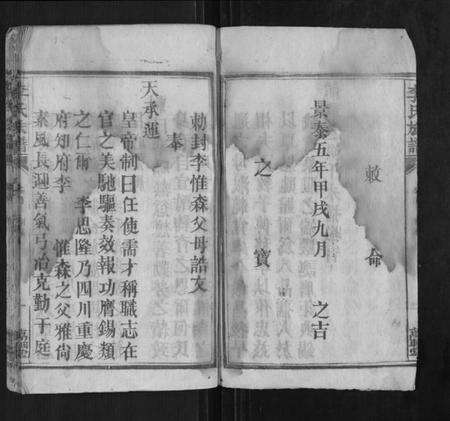 李氏族譜
敕命
景泰五年甲戌九月 之吉
之寶
勅封李惟森父母誥文
奉
天承運
皇帝制曰任使需才稱職志在
官之美馳驅奏效報功膺錫類
之仁爾 李思隆乃四川重慶
府知府李 惟森之父雅尚
素風長迎善氣弓冶克勤于庭
李氏族譜